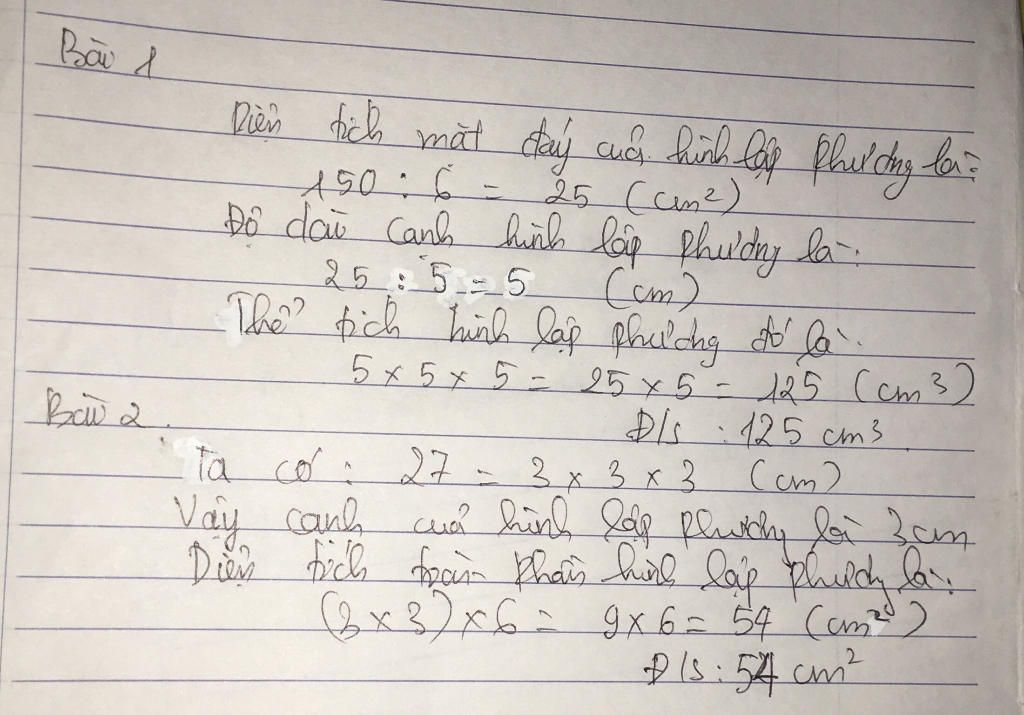 Bài 1
Diện tích mặt đáy của hình lập phương là:
150 : 6 = 25 (cm²)
Độ dài cạnh hình lập phương là:
25 : 5 = 5 (cm)
Thể tích hình lập phương đó là:
5 x 5 x 5 = 25 x 5 = 125 (cm3)
Đ/s : 125 cm3
Bài 2.
Ta có : 27 = 3 x 3 x 3 (cm)
Vậy cạnh của hình lập phương là 3cm
Diện tích toàn phần hình lập phương là:
(3 x 3) x 6 = 9 x 6 = 54 (cm²)
Đ/s : 54 cm²